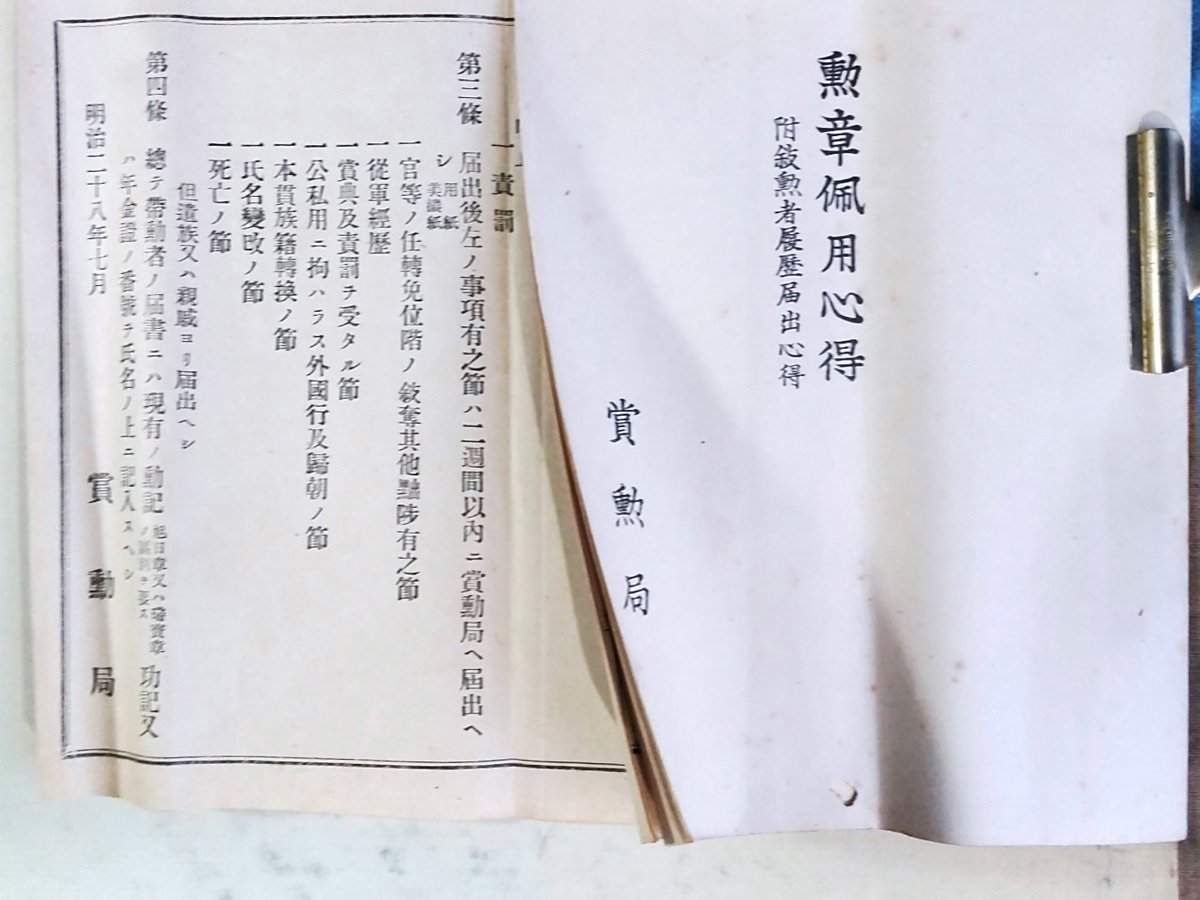 勲章佩用心得
附敍勲者履歷届出心得
賞勲局
一責罰
第三條 届出後左ノ事項有之節ハ二週間以內ニ賞勳局ヘ届出ヘ
シ 用紙美濃紙
一官等ノ任轉免位階ノ敍奪其他黜陟有之節
一從軍經歷
一賞典及責罰ヲ受タル節
一公私用ニ拘ハラス外國行及歸朝ノ節
一本貫族籍轉換ノ節
一氏名變改ノ節
一死亡ノ節
但遺族又ハ親戚ヨリ届出ヘシ
第四條 總テ帶勳者ノ届書ニハ現有ノ勳記 旭日章又ハ瑞寶章ノ區別ヲ要ス 功記又
ハ年金證ノ番號ヲ氏名ノ上ニ記入スヘシ
明治二十八年七月
賞勳局